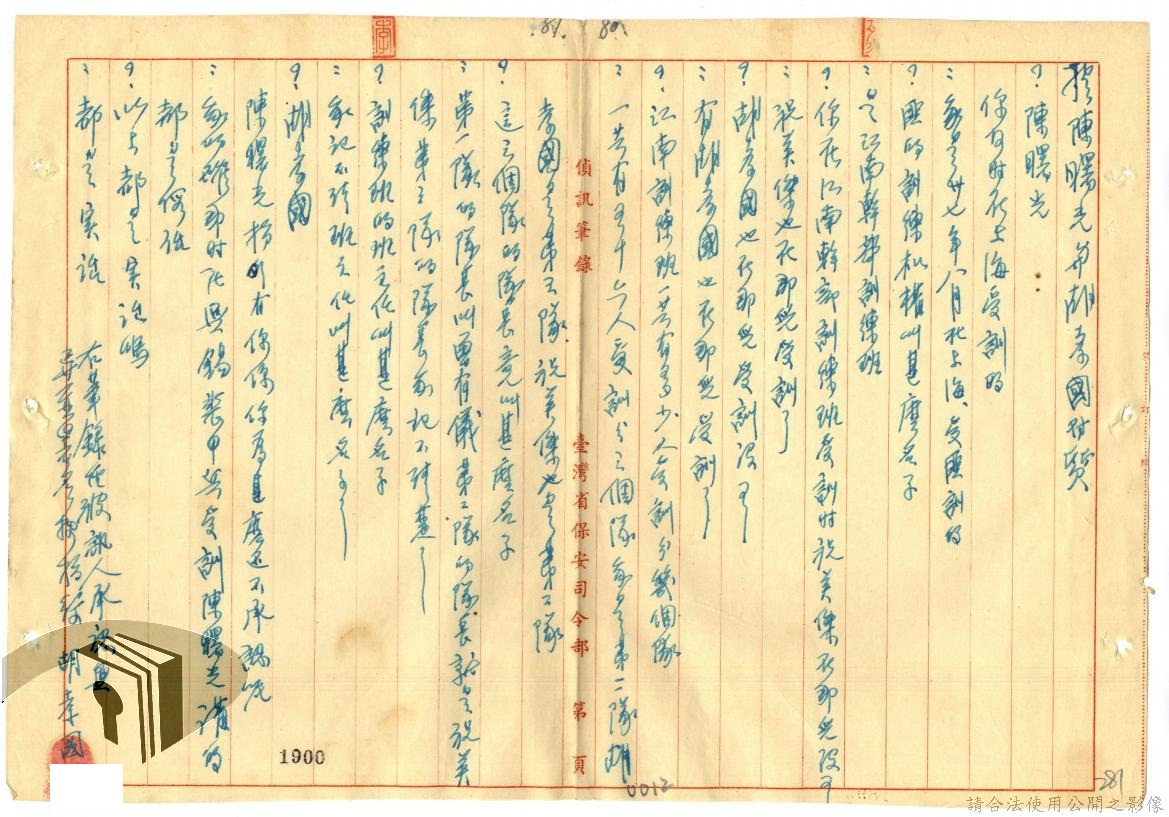 提陳曙光和胡孝國對質
?陳曙光
你何时在上海受訓的
:我是卅七年八月在上海受匪訓的
?匪的訓練机構叫甚麼名子
:是江南幹部訓練班
?你在江南幹部訓練班受訓时祝英傑在那兒没有
祝英傑也在那兒受訓了
?胡孝國也在那兒受訓没有
:有胡孝國也在那兒受訓了
?江南訓練班一共有多少人受訓分幾個隊
:一共有五十六人受訓分三個隊我是第二隊胡
孝國是第三隊祝英傑也是第二隊
?這三個隊的隊長竟叫甚麼名子
:第一隊的隊長叫曾有儀第二隊的隊長就是祝英
傑第三隊的隊長我記不清楚了
?訓練班的班主任叫甚麼名子
:我記不清班主任叫甚麼名子了
?胡孝國
陳曙光指明有你你你為甚麼还不承認呢
:我的確那时在無錫裝甲兵受訓陳曙光講的
都是假話
?以上都是实話嗎
:都是实話
右筆錄任被訊人承認無
胡孝國
偵訊筆錄
臺灣省保安司令部
第 頁
81.
80.
1900
0012
281
請合法使用公開之影像